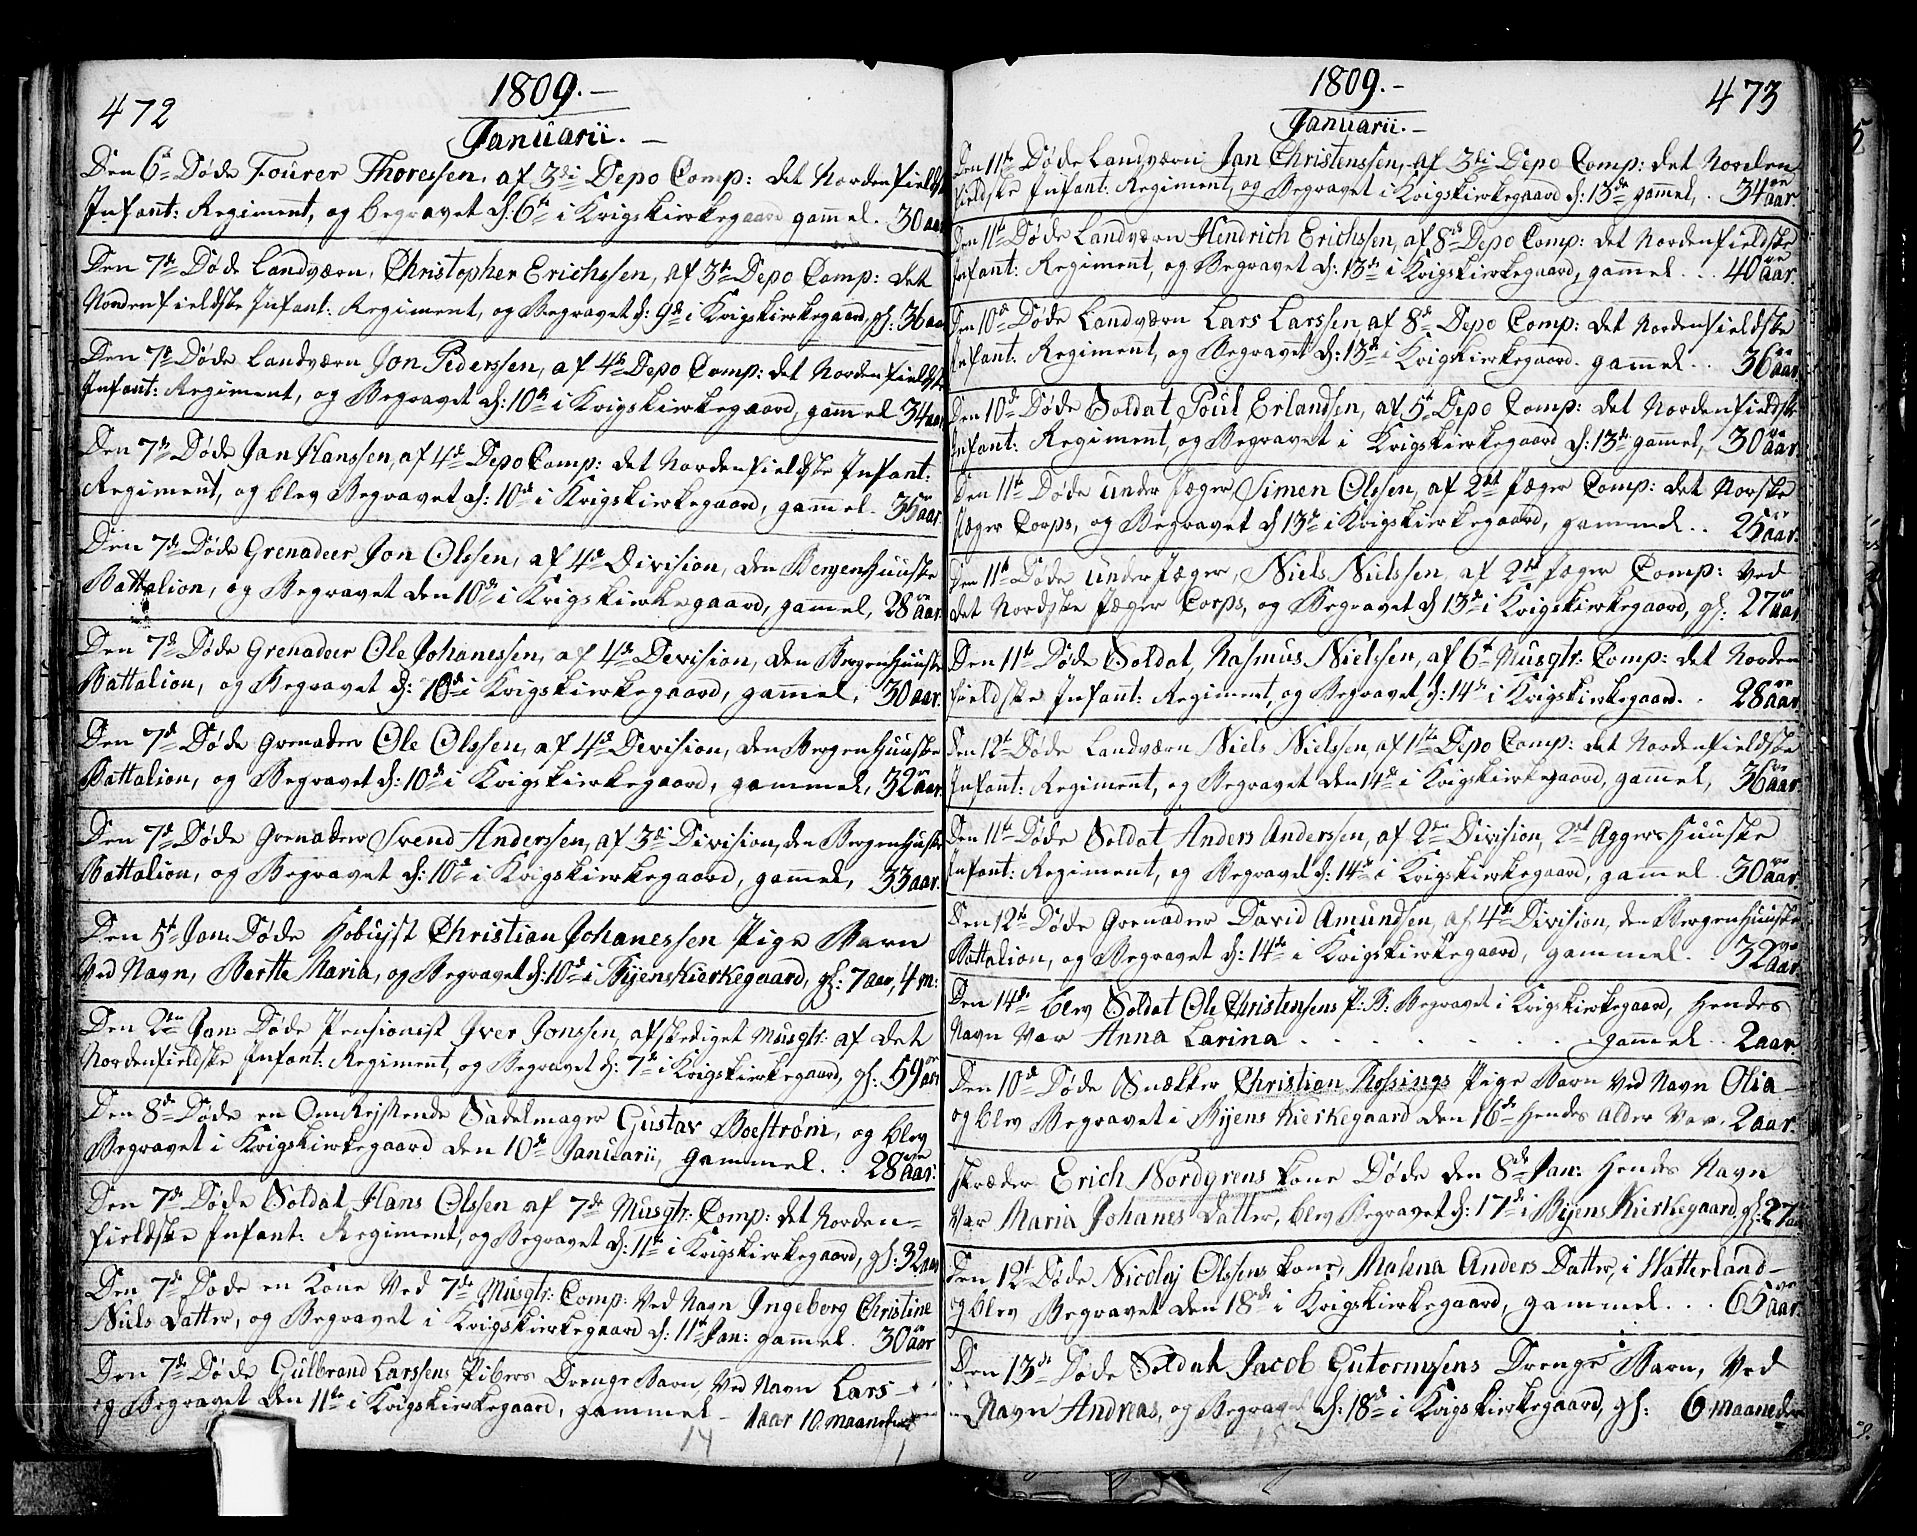 472
1809.-
Januarii.-
Den 6te Døde Fourer Thoressen, af 3di Depo Comp: det Nordenfieldske
Infant: Regiment, og begravet d: 6te i Krigskierkegaard gammel. 30 aar
Den 7de Døde Landværn, Christopher Erichssen, af 3de Depo Comp: det
Nordenfieldske Infant: Regiment, og Begravet d: 9de i Krigskierkegaard, gl: 36 aar
Den 7de Døde Landværn Jon Pederssen, af 4de Depo Comp: det Nordenfieldske
Infant: Regiment, og Begravet d: 10de i Krigskierkegaard, gammel 34 aar
Den 7de Døde Jan Hanssen, af 4de Depo Comp: det Nordenfieldske Infant:
Regiment, og blev Begravet d: 10de i Krigskierkegaard, gammel. 35 aar.
Den 7de Døde Grenadeer Jon Olssen, af 4de Division, den Bergenhuuske
Battalion, og Begravet den 10de i Krigskierkegaard, gammel, 28 aar.
Den 7de Døde Grenadeer Ole Johanessen, af 4de Devision, den Bergenhuuske
Battalion, og Begravet d: 10de i Krigskierkegaard, gammel, 30 aar.
Den 7de Døde Grenadeer Ole Olssen, af 4de Division, den Bergenhuuske
Battalion, og Begravet d: 10de i Krigskierkegaard, gammel, 32 aar.
Den 7de Døde Grenadeer Svend Anderssen, af 3di Division, den Bergenhuuske
Battalion, og Begravet d: 10de i Krigskierkegaard, gammel, 33 aar.
Den 5t Jan: Døde Christian Johanessen Pige Barn
Ved Navn, Berthe Maria, og Begravet d: 10de i Byens Kierkegaard, gl: 7 aar, 4 m:
Den 2den Jan: Døde Pensionist Iver Jonssen, afskediget Musqtr: af det
Nordenfieldske Infant: Regiment, og Begravet d: 7de i Krigskierkegaard, gl: 59 aar
Den 8de Døde en Omrejsende Sadelmager Gustav Boestrøm, og blev
Begravet i Krigskierkegaard den 10de Januarii, gammel. . 28 aar:
Den 7de Døde Soldat Hans Olssen af 7de Musqtr: Comp: det Norden-
fieldske Infant: Regiment, og Begravet d: 11te i Krigskierkegaard, gl: 32 aar
Den 7de Døde en Kone Ved 7de Musqtr: Comp: Ved Navn Ingeborg Christine
Niels Datter, og Begravet i Krigskierkegaard d: 11te Jan: gammel. 30 aar
Den 7de Døde Gulbrand Larssens Pibers Drenge Barn Ved Navn Lars-
og Begravet den 11te i Krigskierkegaard, gammel - 1 aar 10. maaneder
14
473
1809.-
Januarii.-
Den 11te Døde Landværn Jan Christenssen, af 3di Depo Comp: det Norden
fieldske Infant: Regiment, og Begravet i Krigskierkegaard d: 13de gammel, . 34 aar.
Den 11te Døde Landværn Hendrich Erichssen, af 8de Depo Comp: det Nordenfieldske
Infant: Regiment, og Begravet d: 13de i Krigskierkegaard, gammel . . . 40 aar.
Den 10de Døde Landværn Lars Larssen af 8de Depo Comp: det Nordenfieldske
Infant: Regiment, og Begravet d: 13de i Krigskierkegaard. gammel . . 36 aar.
Den 10de Døde Soldat Poul Erlandsen, af 5te Depo Comp: det Nordenfieldske
Infant: Regiment, og Begravet i Krigskierkegaard d: 13de gammel, 30 aar.
Den 11te Døde under Jæger Simen Olssen, af 2det Jæger Comp: det Norske
Jæger Corps, og Begravet d 13de i Krigskierkegaard, gammel . . 25 aar.
Den 11te Døde under Jæger, Niels Nielssen, af 2det Jæger Comp: Ved
det Nordske Jæger Corps, og Begravet d 13de i Krigskierkegaard, gl: 27 aar
Den 11te Døde Soldat, Rasmus Nielssen, af 6te Musqtr: Comp: det Norden
fieldske Infant: Regiment, og Begravet d: 14de i Krigskierkegaard. . 28 aar.
Den 12te Døde Landværn Niels Nielssen, af 1te Depo Comp: det Nordenfieldske
Infant: Regiment, og Begravet den 14de i Krigskierkegaard, gammel, 36 aar.
Den 11te Døde Soldat Anders Anderssen, af 2den Division, 2det Aggershuuske
Infant: Regiment, og Begravet d: 14de i Krigskierkegaard, gammel. 30 aar.
Den 12te Døde Grenadeer David Amundsen, af 4de Division, den Bergenhuuske
Battalion, og Begravet d: 14de i Krigskierkegaard, gammel. . 32 aar.
Den 14de blev Soldat Ole Christensens P: B: Begravet i Krigskierkegaard, Hendes
Navn Var Anna Larina . . . . . . . gammel . . 2 aar.
Den 10de Døde Snækker Christian Rossings Pige Barn Ved Navn Olia-
og blev Begravet i Byens Kierkegaard den 16de Hendes alder Var. 2 aar.
Skræder Erich Nordgrens Kone Døde den 8de Jan: Hendes Navn
Var Maria Johanes Datter, blev Begravet d: 17de i Byens Kierkegaard, gl: 27 aar
Den 12te Døde Nicolej Olssens kone, Malena Anders Datter, i Vatterland-
og blev Begravet den 18de i Krigskierkegaard, gammel. . . 65 aar.
Den 13de Døde Soldat Jacob Gutormssens Drenge Barn, Ved
Navn Andreas, og Begravet d: 18de i Krigskierkegaard, gl: 6 maaneder
15